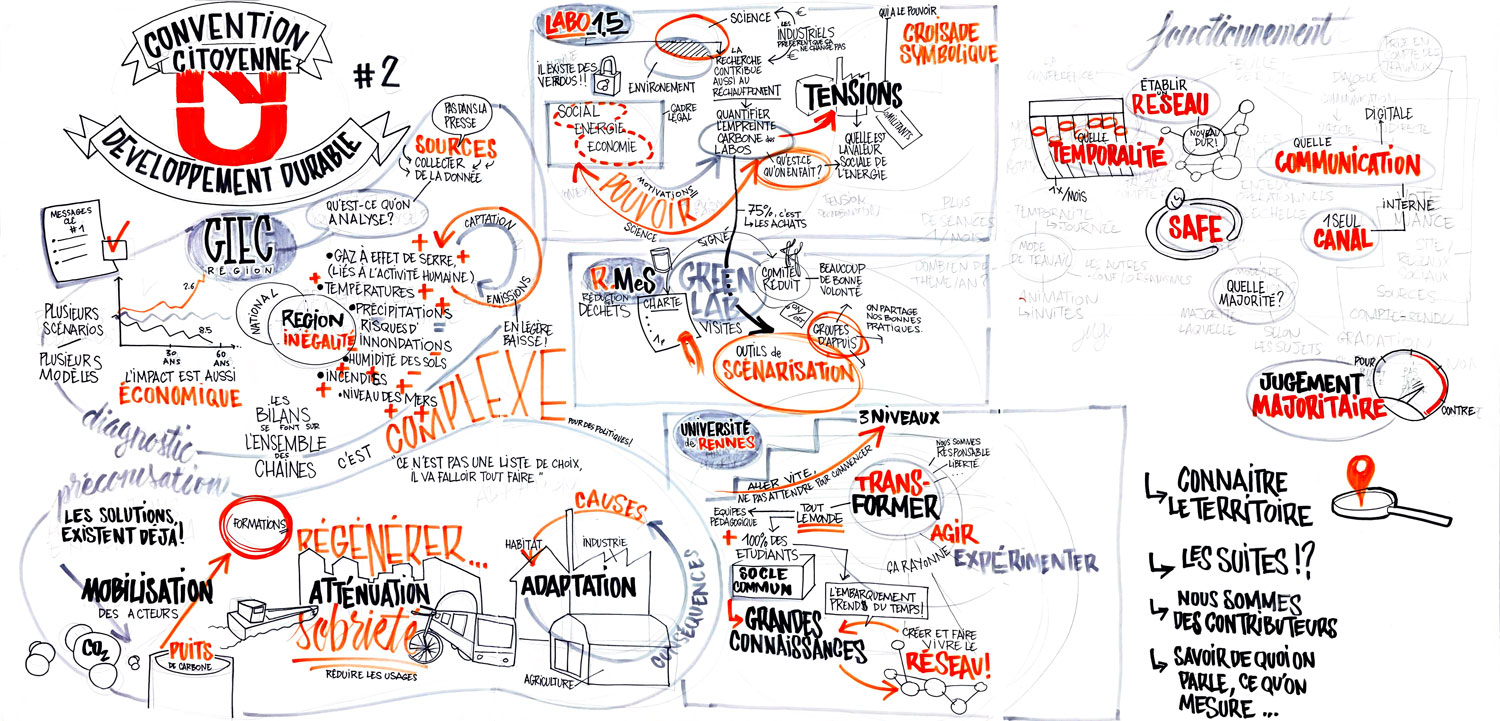 CONVENTION
CITOYENNE
NU
DEVELOPPEMENT DURABLE
#2
PAS DANS LA
PRESSE
SOURCES
COLLECTER
DE LA DONNÉE
QU'EST-CE QU'ON
ANALYSE?
MESSAGES
de
#1
GIEC
RÉGION
PLUSIEURS
SCÉNARIOS
PLUSIEURS
MODÈLES
2.6
8.5
30
ANS
60
ANS
L'IMPACT EST AUSSI
ÉCONOMIQUE
NATIONAL
REGION
INÉGALITÉ
•GAZ À EFFET DE SERRE,
(LIÉS À L'ACTIVITÉ HUMAINE)
•TEMPÉRATURES
•PRÉCIPITATIONS
RISQUES D'
INNONDATIONS
•HUMIDITÉ DES SOLS
•INCENDIES
•NIVEAU DES MERS
CAPTATION
EMISSIONS
EN LÉGÈRE
BAISSE!
LES
BILANS
SE FONT SUR
L'ENSEMBLE
DES
CHAINES
C'EST
COMPLEXE
POUR DES POLITIQUES!
"CE N'EST PAS UNE LISTE DE CHOIX,
IL VA FALLOIR TOUT FAIRE"
diagnostic
préconisation
LES SOLUTIONS,
EXISTENT DÉJÀ!
FORMATIONS
MOBILISATION
DES ACTEURS
CO2
PUITS
DE CARBONE
RÉGÉNÉRER...
ATTÉNUATION
sobriété
RÉDUIRE LES USAGES
CAUSES
HABITAT
INDUSTRIE
ADAPTATION
AGRICULTURE
CONSÉQUENCES
LABO 1,5
SCIENCE
€
LES
INDUSTRIELS
PRÉFÈRENT QUE ÇA
NE CHANGE PAS
€
QUI A LE POUVOIR
CROISADE
SYMBOLIQUE
IL EXISTE DES
VERROUS!!
ENVIRONEMENT
LA
RECHERCHE
CONTRIBUE
AUSSI AU
RÉCHAUFFEMENT
QUANTIFIER
L'EMPREINTE
CARBONE des
LABOS
SOCIAL
ENERGIE
ECONOMIE
CADRE
LÉGAL
TENSIONS
QUELLE EST
LA VALEUR
SOCIALE DE
L'ENERGIE
QU'EST-CE
QU'ON EN FAIT?
MOTIVATIONS
POUVOIR
SCIENCE
75% C'EST
LES ACHATS
R.MeS
RÉDUCTION
DÉCHETS
CHARTE
SIGNÉ
GREEN
LAB
VISITES
COMITÉ
RÉDUIT
BEAUCOUP
DE BONNE
VOLONTÉ
GROUPES
D'APPUIS
ON PARTAGE
NOS BONNES
PRATIQUES.
OUTILS de
SCÉNARISATION
UNIVERSITÉ
de RENNES
3 NIVEAUX
ALLER VITE,
NE PAS ATTENDRE POUR COMMENCER
NOUS SOMMES
RESPONSABLE
LIBERTÉ
...
TRANS-
FORMER
AGIR
EXPÉRIMENTER
ÇA RAYONNE
EQUIPES
PÉDAGOGIQUE
TOUT
LE MONDE
+ 100% DES
ETUDIANTS
SOCLE
COMMUN
L'EMBARQUEMENT
PREND$ DU TEMPS!
GRANDES
CONNAISSANCES
CRÉER ET FAIRE
VIVRE LE
RÉSEAU!
fonctionnement
ÉTABLIR
UN
RÉSEAU
NOYAU
DUR!
QUELLE
TEMPORALITÉ
1X/MOIS
DIGITALE
QUELLE
COMMUNICATION
INTERNE
1 SEUL
CANAL
SAFE
MODE
DE TRAVAIL
LES AUTRES
ANIMATION
INVITES
QUELLE
MAJORITÉ?
SELON
LES SUJETS
SOURCES
COMPTE-RENDU
GRADATION
POUR
CONTRE
JUGEMENT
MAJORITAIRE
CONNAITRE
LE TERRITOIRE
LES SUITES!?
NOUS SOMMES
DES CONTRIBUTEURS
SAVOIR DE QUOI ON
PARLE, CE QU'ON
MESURE...